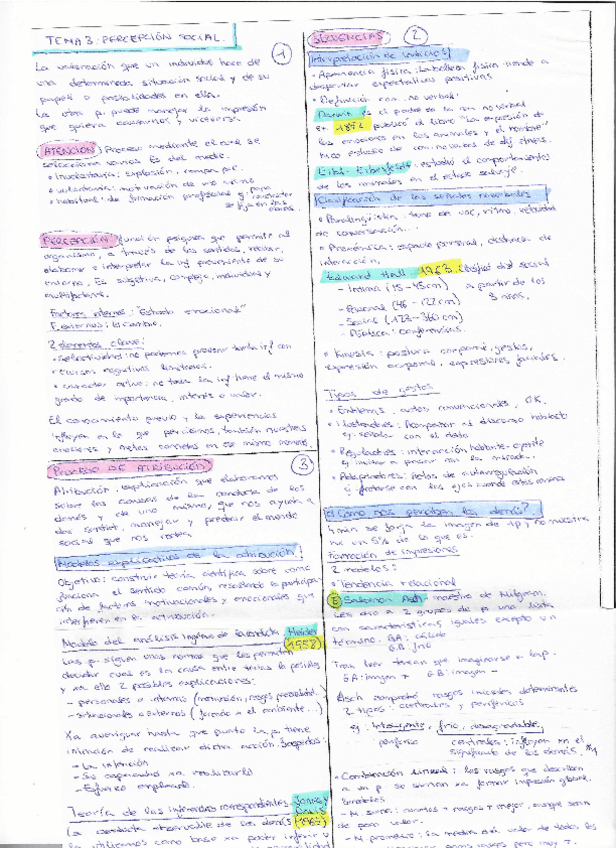 TEMA 3: PERCEPCIÓN SOCIAL.
1
La valoración que un individuo hace de
una determinada situación social y de su
papel o posibilidades en ella.
La otra p. puede manejar la impresión
que quiera causarnos y viceversa.
ATENCIÓN Proceso mediante el cual se
seleccionan varios Es del medio.
• Involuntaria: explosión,
• voluntaria: motivación de uno mismo
• habitual: de formación profesional
PERCEPCIÓN función psíquica que permite al
organismo, a través de los sentidos, recibir,
elaborar e interpretar la inf proveniente de su
entorno. Es subjetiva, compleja, individual y
multifactorial.
Factores internos: "Estado emocional"
F. externos:
2 elementos clave:
• Selectividad: no podemos procesar toda inf con
recursos cognitivos limitados.
• carácter activo: no toda la inf tiene el mismo
grado de importancia, interés o valor.
El conocimiento previo y la experiencia
influyen en lo que percibimos, también nuestras
emociones y metas
PROCESO DE ATRIBUCIÓN
3
Atribución, explicación que elaboramos
sobre las causas de la conducta de los
demás y de uno mismo, que nos ayuda a
dar sentido, manejar y predecir el mundo
social que nos rodea
Modelos explicativos de la atribución
Objetivo: construir teoría científica sobre como
funciona el sentido común, resaltando la participa-
ción de factores motivacionales y emocionales que
interfieren en la atribución.
Modelo del análisis ingenuo de la conducta Heider
(1958)
Las p. siguen unas normas que les permiten
decidir cual es la causa entre todas la posibles
y xa ello 2 posibles explicaciones:
- personales o internas (motivación, rasgos personalidad...)
- situacionales o externas (familia, el ambiente...)
Xa averiguar hasta que punto la p. tiene
intención de realizar dicha acción. 3 aspectos:
- La intención
- Su capacidad xa realizarlo
- Esfuerzo empleado.
Teoría de las inferencias correspondientes Jones y
Davis
(1965)
La conducta observable de los demás
la utilizamos como base xa poder inferir
EVIDENCIAS
2
Interpretación de indicios
• Apariencia física: la belleza física tiende a
despertar expectativas positivas
• Definición com. no verbal:
Darwin es el padre de la com no verbal
en 1872 publicó el libro "La expresión de
las emociones en los animales y el hombre"
hizo estudio de com. no verbal de dif. etnias.
Eibl-Eibesfeldt: estudió el comportamiento
de los animales en el estado salvaje.
Clasificación de las señales no verbales
• Paralingüística: tono de voz, ritmo, velocidad
de conversación.
• Proxémica: espacio personal, distancia de
interacción.
Edward Hall 1963
- Íntima (15-45cm)
a partir de los
- Personal (46-122cm)
- Social (123-360cm)
- Pública: conferencias.
• Kinesia: postura corporal, gestos,
expresión corporal, expresiones faciales.
Tipos de gestos
• Emblemas: actos convencionales, OK.
• Ilustradores: Acompañar al discurso hablado
ej: señalar con el dedo
• Reguladores: interacción hablante-oyente
ej: invitar a pasar con la mirada.
• Adaptadores: Actos de autorregulación
¿Cómo nos perciben los demás?
4 min se forja la imagen de 1p y no muestra
un 5% de lo que es.
Formación de impresiones
2 modelos:
• Tendencia relacional
E Salomon Asch maestro de Milgram.
Les dio a 2 grupos de p una lista
con características iguales excepto un
término. GA: cálido
GB: frío
Tras leer tenían que imaginarse a la p.
GA: imagen +
GB: imagen -
Asch comprobó rasgos iniciales determinantes
2 tipos: centrales y periféricos
ej: Inteligente, frío, responsable,
periférico
centrales: influyen en el
significado de los demás.
• Combinación lineal: los rasgos que describen
a un p se suman xa formar impresión global.
2 modelos
- M. suma: cuantos + rasgos + mejor, aunque sean
de poco valor.
- M. promedio: la media del valor de todos los